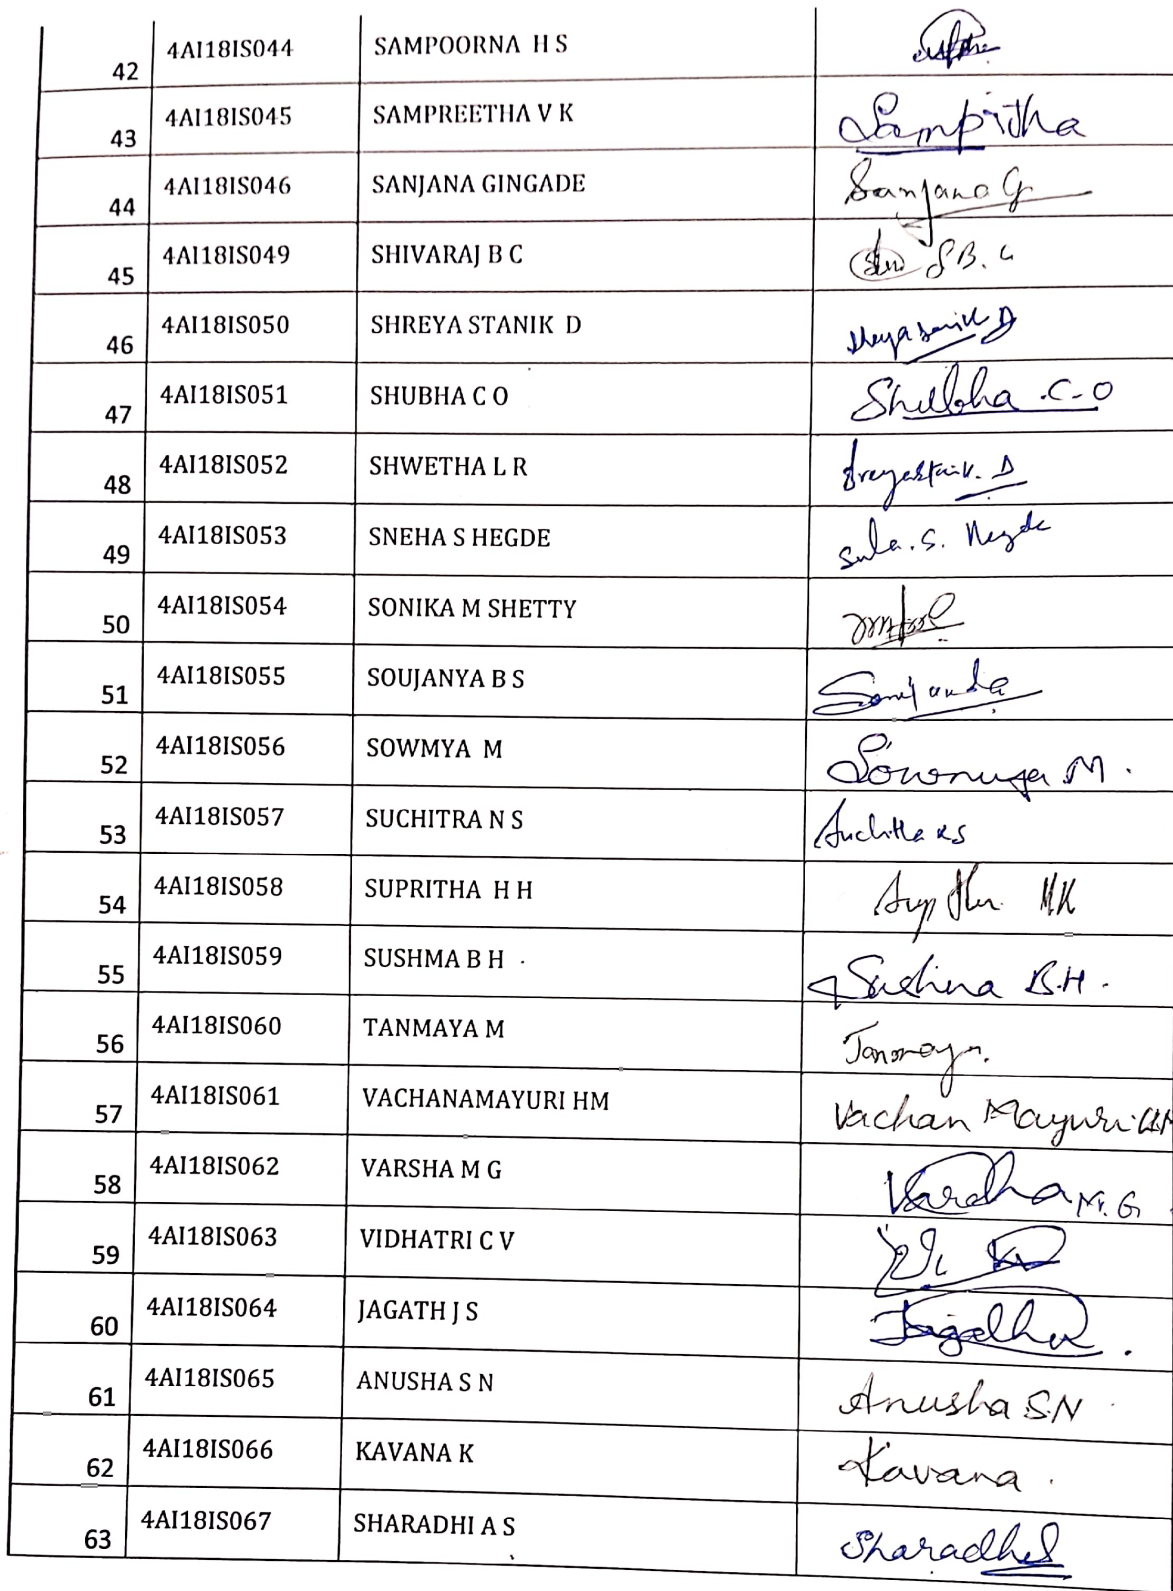 42 4AI18IS044 SAMPOORNA H S
43 4AI18IS045 SAMPREETHA V K Sampritha
44 4AI18IS046 SANJANA GINGADE Sanjana G
45 4AI18IS049 SHIVARAJ B C S B. C
46 4AI18IS050 SHREYA STANIK D
47 4AI18IS051 SHUBHA C O Shubha .C-O
48 4AI18IS052 SHWETHA L R
49 4AI18IS053 SNEHA S HEGDE S. Hegde
50 4AI18IS054 SONIKA M SHETTY
51 4AI18IS055 SOUJANYA B S
52 4AI18IS056 SOWMYA M M.
53 4AI18IS057 SUCHITRA N S
54 4AI18IS058 SUPRITHA H H
55 4AI18IS059 SUSHMA B H B.H.
56 4AI18IS060 TANMAYA M
57 4AI18IS061 VACHANAMAYURI HM Vachan Mayuri
58 4AI18IS062 VARSHA M G M. G
59 4AI18IS063 VIDHATRI C V
60 4AI18IS064 JAGATH J S
61 4AI18IS065 ANUSHA S N Anusha S.N
62 4AI18IS066 KAVANA K Kavana .
63 4AI18IS067 SHARADHI A S